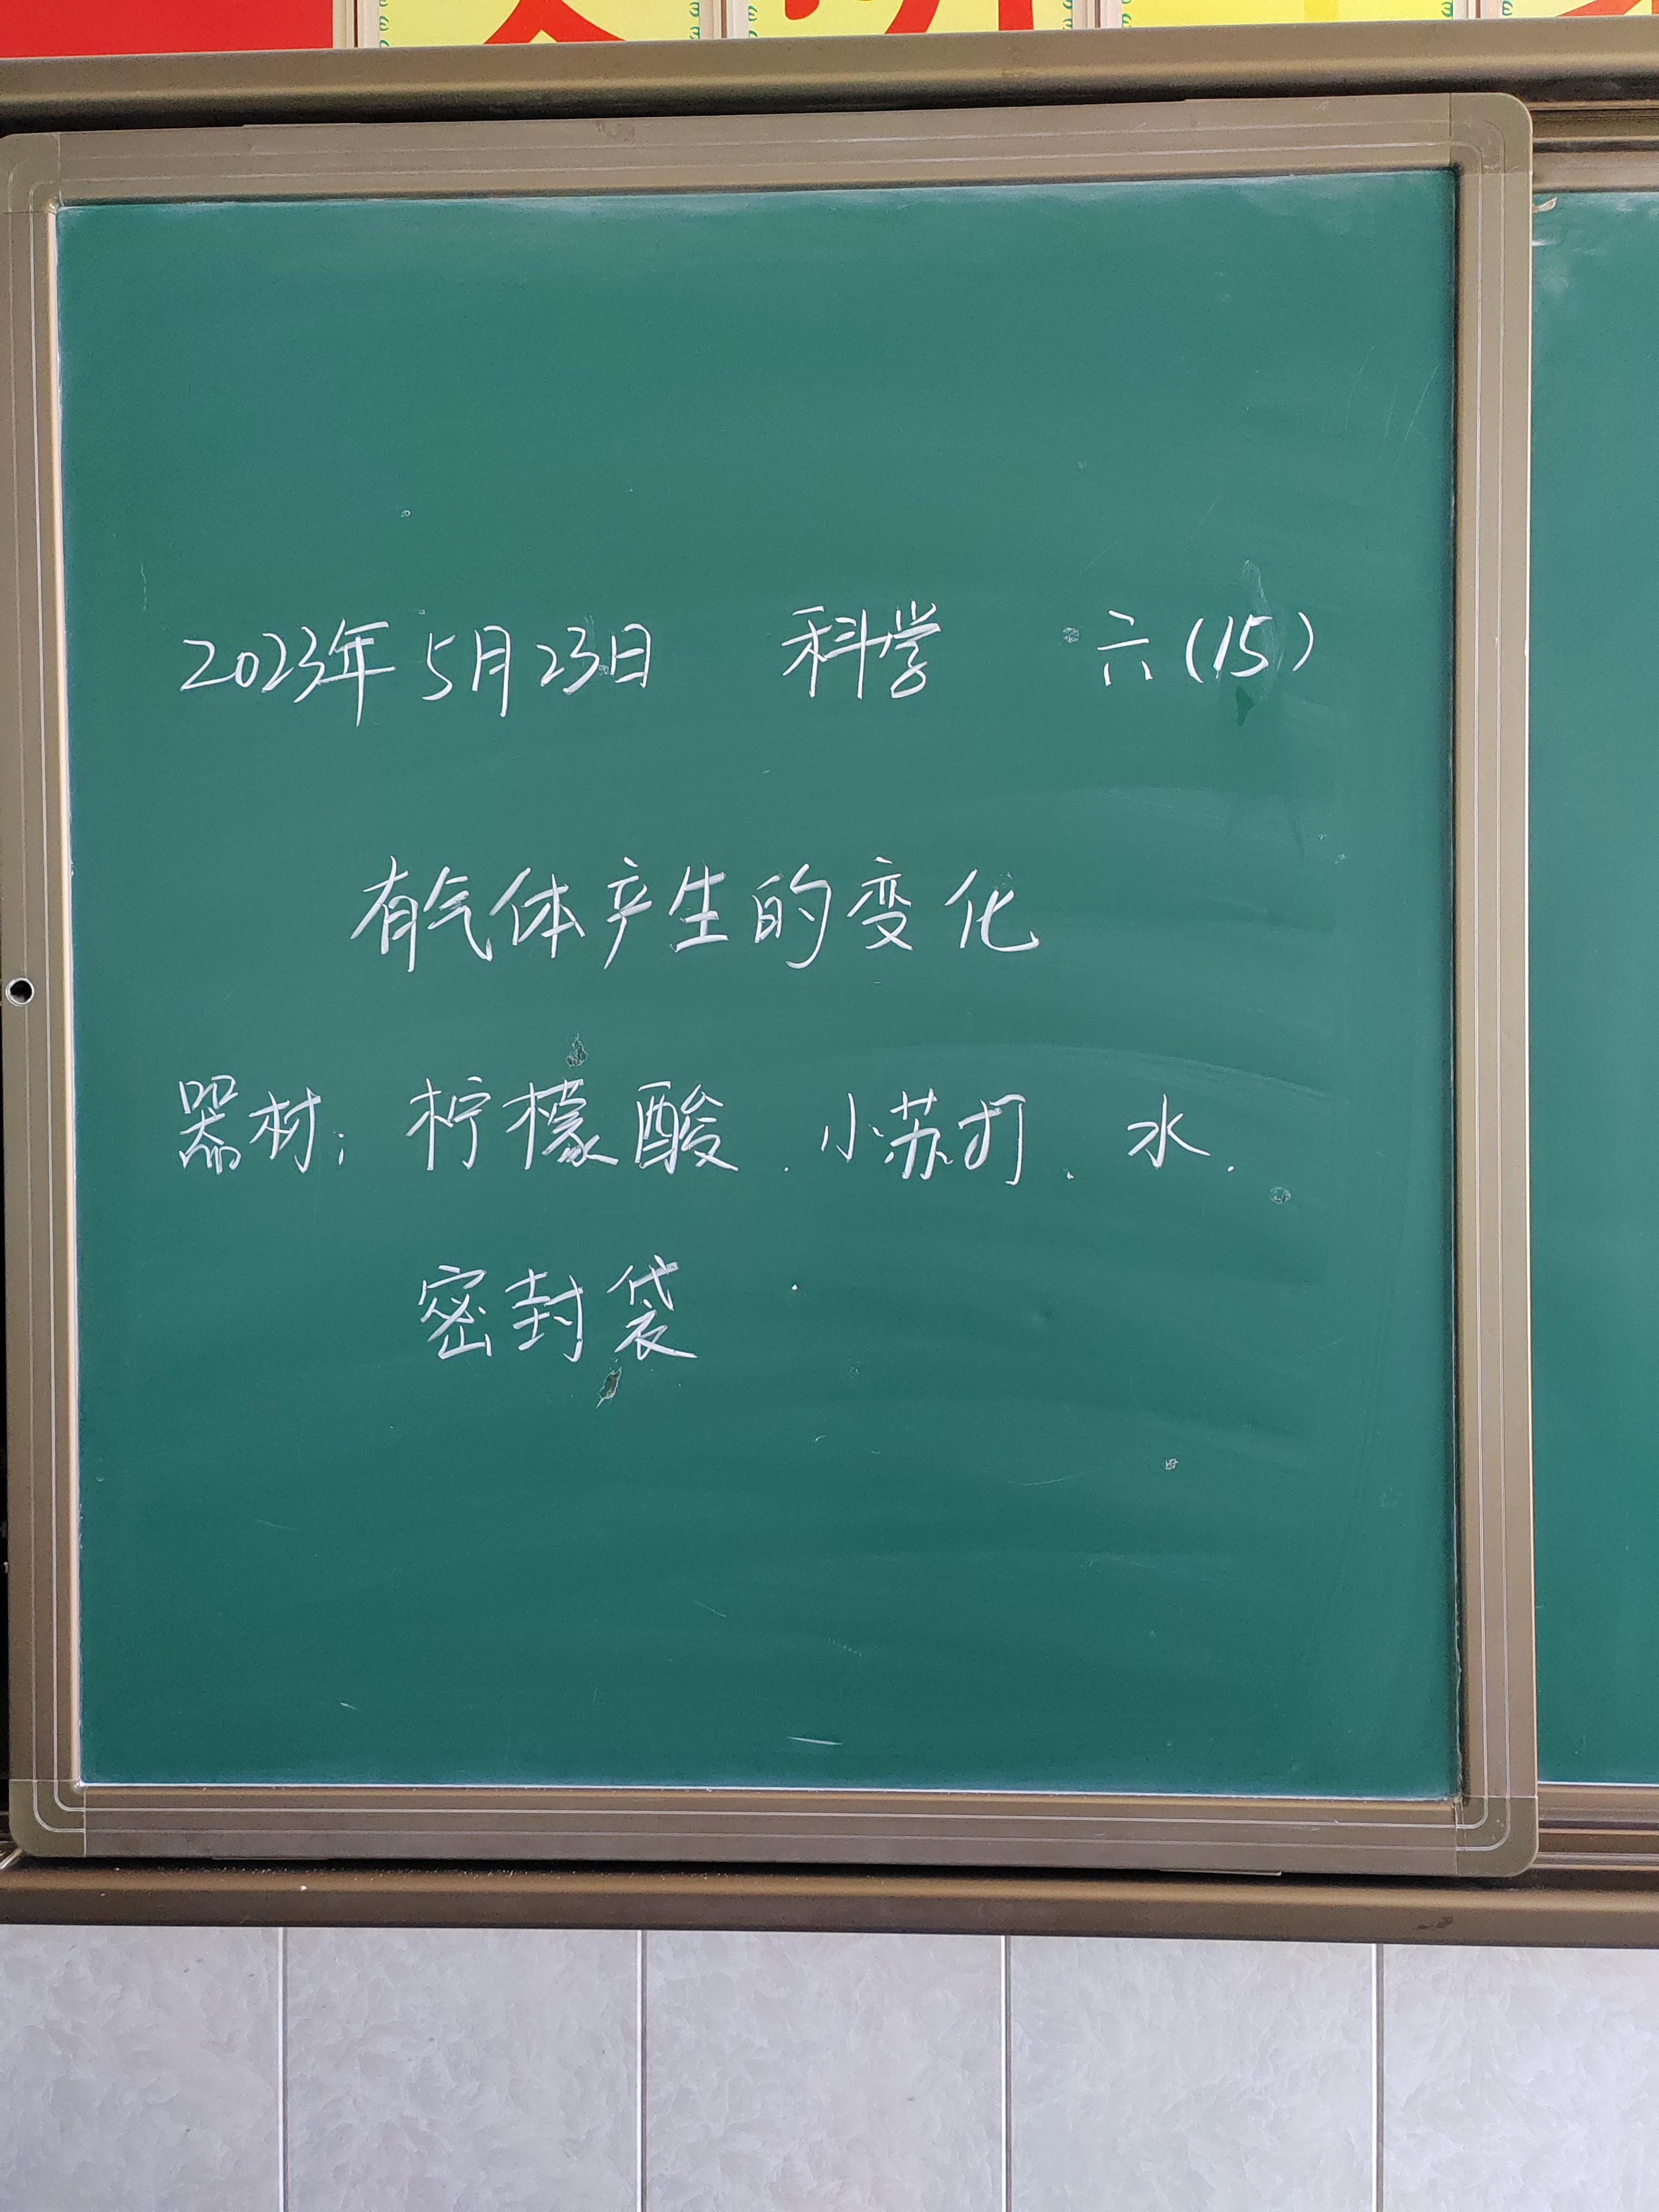 2023年5月23日 科学 六(15)
有气体产生的变化
器材：柠檬酸、小苏打、水、
密封袋